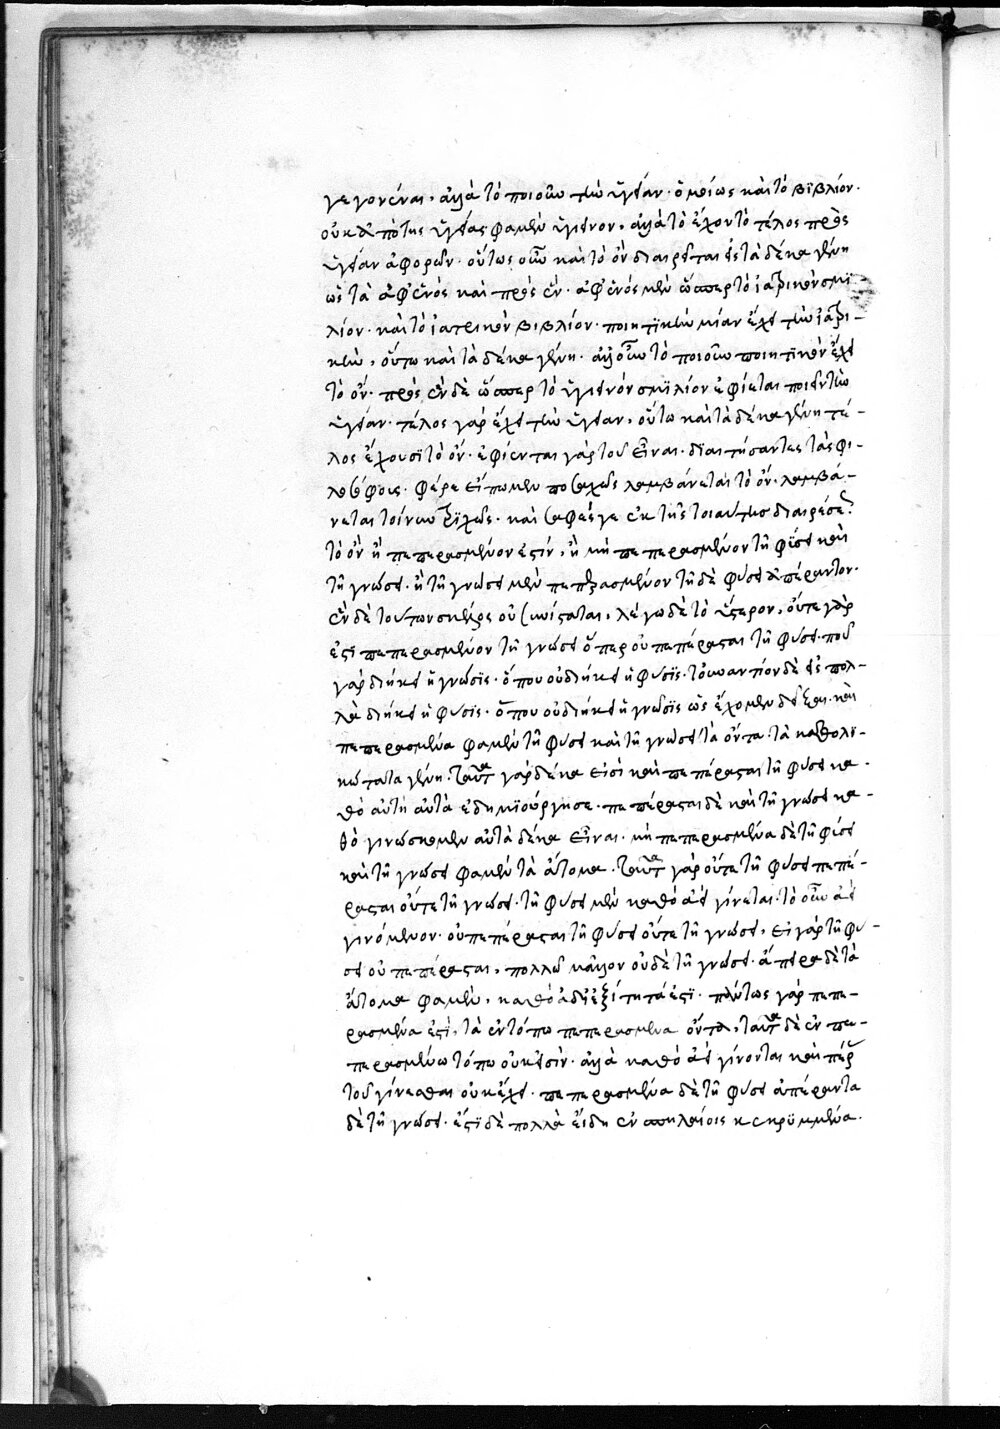 γεγονέναι, ἀλλὰ τὸ ποιοῦν τὴν ὑγείαν· ὁμοίως καὶ τὸ βιβλίον·
οὐκ ἀπὸ τῆς ὑγείας φαμὲν ὑγιεινὸν, ἀλλὰ τὸ ἔχον τὸ τέλος πρὸς
ὑγείαν ἀφορῶν· οὕτως οὖν καὶ τὸ ὂν διαιρεῖται εἰς τὰ δέκα γένη
ὡς τὰ ἀφ' ἑνὸς καὶ πρὸς ἕν· ἀφ' ἑνὸς μὲν ὥσπερ τὸ ἰατρικὸν σμι
λίον· καὶ τὸ ἰατρικὸν βιβλίον· ποιητικὴν μίαν ἔχει τὴν ἰατρι-
κὴν, οὕτω καὶ τὰ δέκα γένη· ἀλλ' οὖν τὸ ποιοῦν ποιητικὸν ἔχει
τὸ ὄν· πρὸς ἓν δὲ ὥσπερ τὸ ὑγιεινὸν σμιλίον ἐφίεται ποιεῖν τὴν
ὑγείαν· τέλος γὰρ ἔχει τὴν ὑγείαν, οὕτω καὶ τὰ δέκα γένη τέ-
λος ἔχουσι τὸ ὄν· ἐφίενται γὰρ τοῦ εἶναι· διαιτήσαντες τὰς φι-
λοσόφοις· φέρε εἴπωμεν ποσαχῶς λαμβάνεται τὸ ὄν· λαμβά-
νεται τοίνυν τριχῶς· καὶ σαφές γε ἐκ τῆς τοιαύτης διαιρέσεως
τὸ ὂν ἢ πεπερασμένον ἐστίν, ἢ μὴ πεπερασμένον τῇ φύσει καὶ
τῇ γνώσει· ἢ τῇ γνώσει μὲν πεπερασμένον τῇ δὲ φύσει ἀπέραντον·
ἓν δὲ τούτων σκέλος οὐ συνίσταται, λέγω δὲ τὸ ὕστερον, οὔτε γὰρ
ἐστι πεπερασμένον τῇ γνώσει ὅπερ οὐ πεπέρασται τῇ φύσει· ποῦ
γὰρ διήκει ἡ γνῶσις· ὅπου οὐ διήκει ἡ φύσις· τοὐναντίον δὲ εἰς πολ-
λὰ διήκει ἡ φύσις· ὅπου οὐ διήκει ἡ γνῶσις ὡς ἔχομεν δεῖξαι· καὶ
πεπερασμένα φαμὲν τῇ φύσει καὶ τῇ γνώσει τὰ ὄντα· τὰ καθολι-
κώτατα γένη· ταῦτα γὰρ δέκα εἰσὶ καὶ πεπέρασται τῇ φύσει κα-
θὸ αὐτὴ αὐτὰ ἐδημιούργησε· πεπέρασται δὲ καὶ τῇ γνώσει κα-
θὸ γινώσκομεν αὐτὰ δέκα εἶναι· μὴ πεπερασμένα δὲ τῇ φύσει
καὶ τῇ γνώσει φαμὲν τὰ ἄτομα· ταῦτα γὰρ οὔτε τῇ φύσει πεπέ-
ρασται οὔτε τῇ γνώσει· τῇ φύσει μὲν καθὸ ἀεὶ γίνεται· τὸ οὖν ἀεὶ
γινόμενον· οὐ πεπέρασται τῇ φύσει οὔτε τῇ γνώσει, εἰ γὰρ τῇ φύ-
σει οὐ πεπέρασται, πολλῷ μᾶλλον οὐδὲ τῇ γνώσει· ἄπειρα δὲ τὰ
ἄτομα φαμὲν, καθὸ ἀδιεξίτητά ἐστι· πάντως γὰρ πεπε-
ρασμένα ἐστὶ, τὰ ἐν τόπῳ πεπερασμένα ὄντα, ταῦτα δὲ ἐν πε-
περασμένῳ τόπῳ οὐκ εἰσὶν· ἀλλὰ καθὸ ἀεὶ γίνονται καὶ πέρας
τοῦ γίνεσθαι οὐκ ἔχει· πεπερασμένα δὲ τῇ φύσει ἀπέραντα
δὲ τῇ γνώσει· ἔστι δὲ πολλὰ εἴδη ἐν σπηλαίοις κεκρυμμένα·